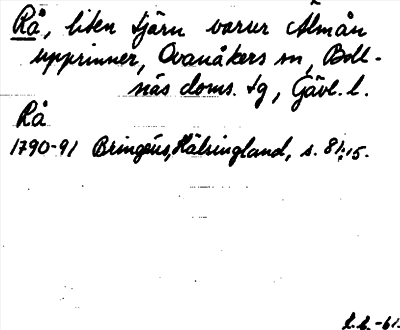 Rå, liten tjärn varur Älmån
upprinner, Ovanåkers sn, Boll-
näs doms. tg, Gävl. l.
Rå
1790-91 Bringéus, Hälsingland, s. 81:15.
L. L. -61.